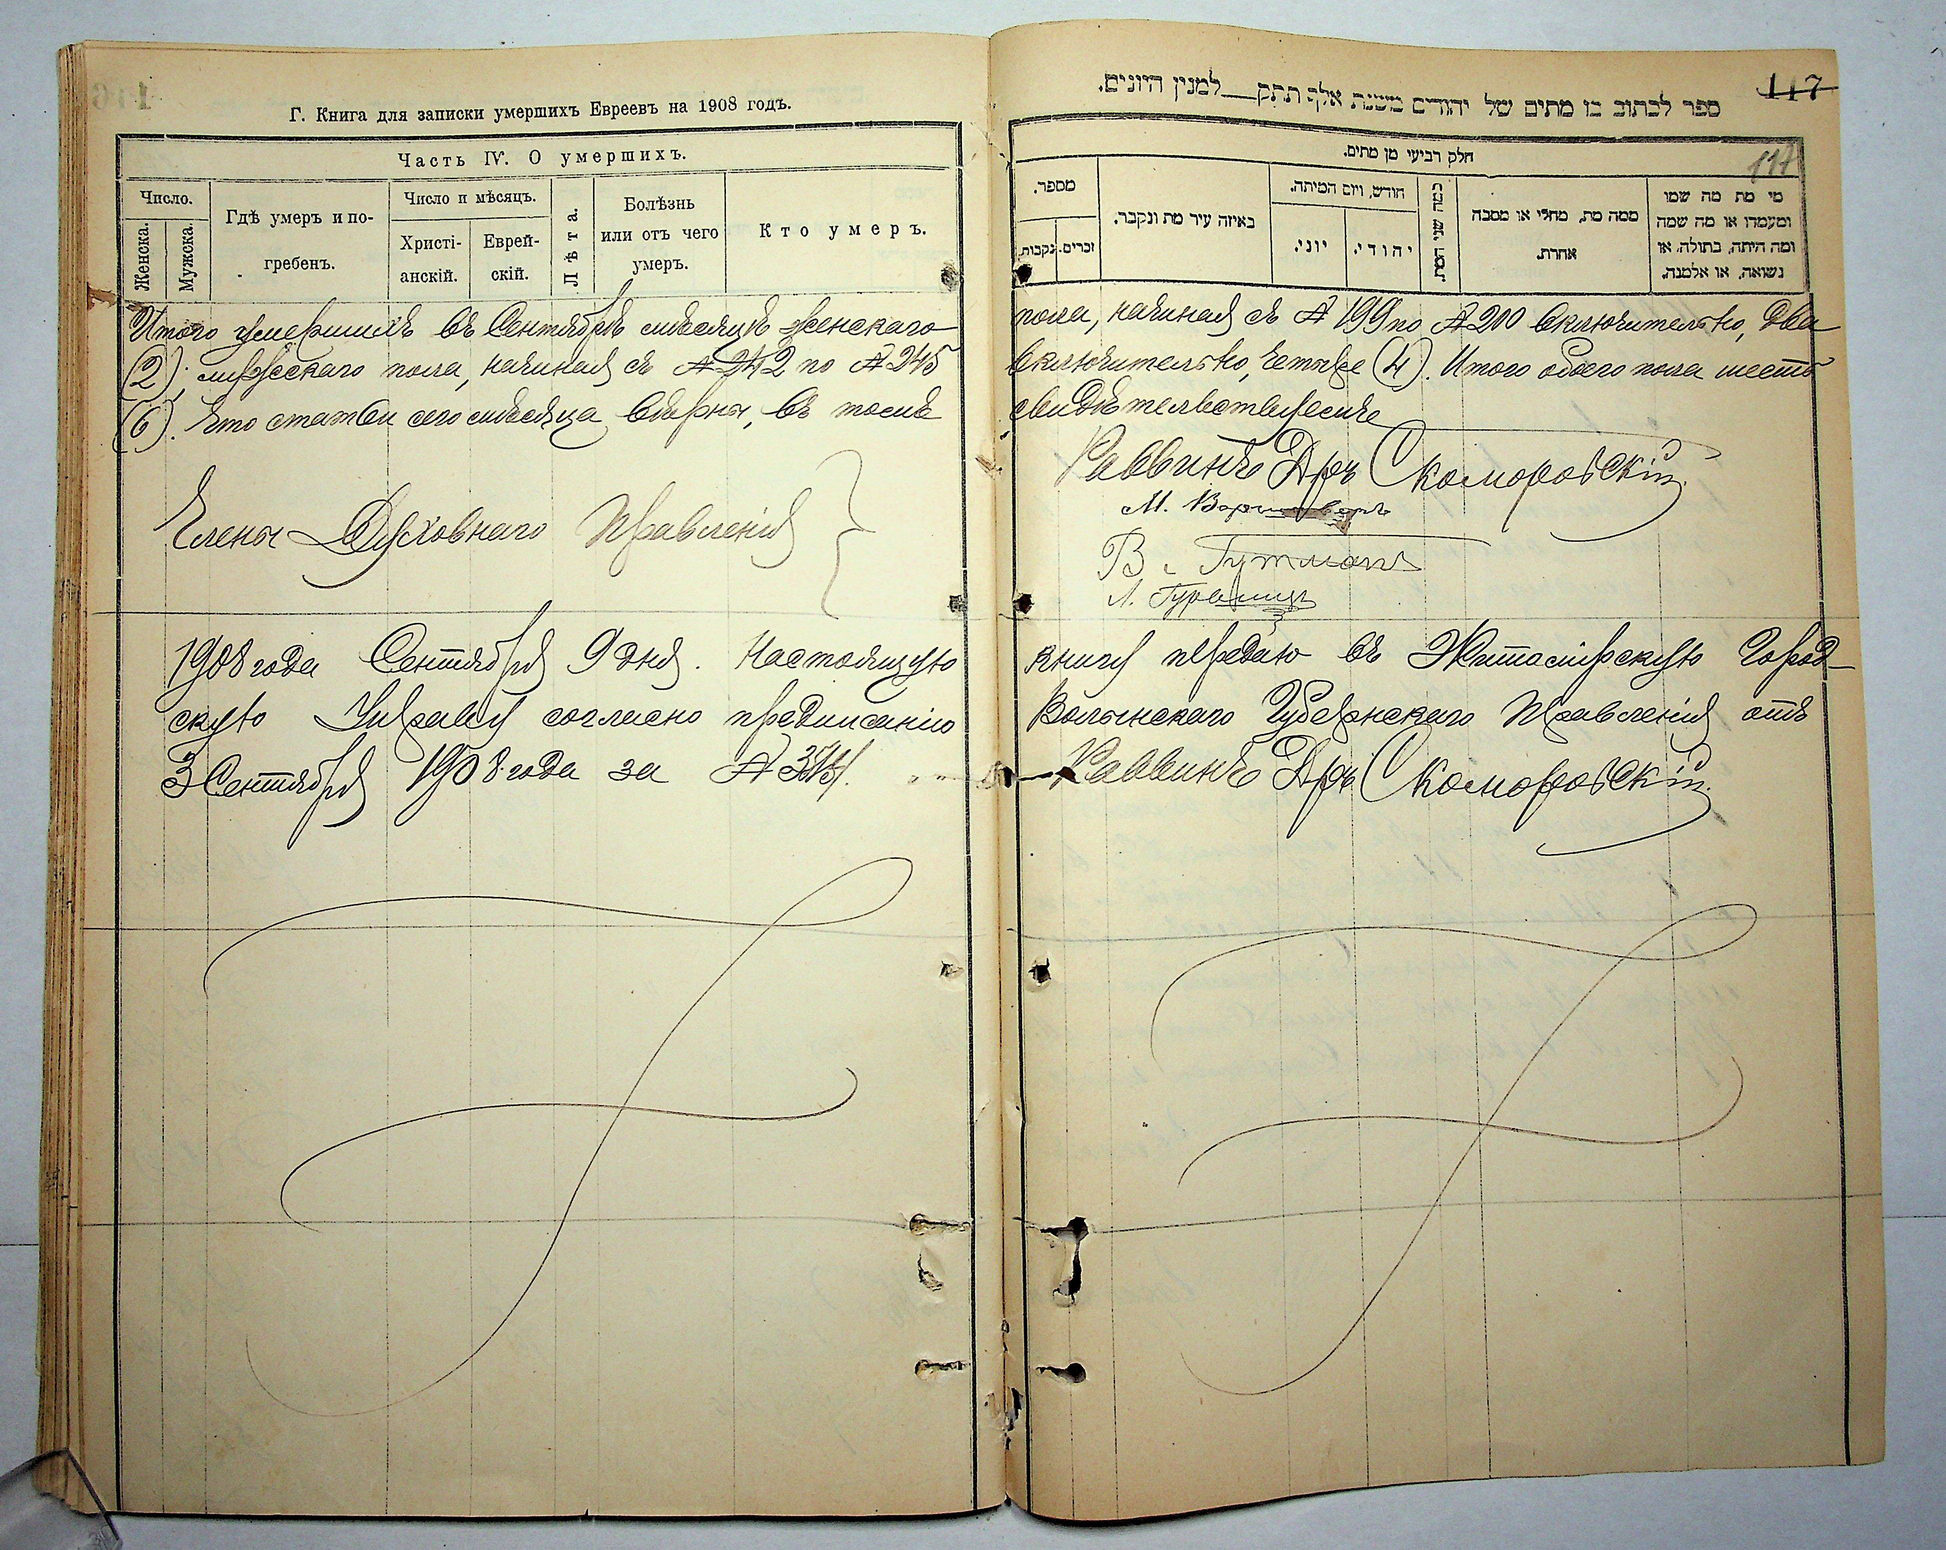 Г. Книга для записки умершихъ Евреевъ на 1908 годъ.
Часть IV. О умершихъ.
Число.
Женска.
Мужска.
Гдѣ умеръ и по-
гребенъ.
Число и мѣсяцъ.
Христі-
анскій.
Еврей-
скій.
Лѣта.
Болѣзнь
или отъ чего
умеръ.
Кто умеръ.
Итого умершихъ въ Сентябрѣ мѣсяцѣ женскаго
(2); мужескаго пола, начиная съ № 242 по № 245
(6). Что статьи сего мѣсяца вѣрны, въ томъ
Члены Духовнаго Правленія
1908 года Сентября 9 дня. Настоящую
скую Управу согласно предписанію
3 Сентября 1908 года за №
117
ספר לכתוב בו מתים של יהודים משנת אלף תתק למנין היונים.
117
חלק רביעי מן מתים.
מספר.
נקבות.
זכרים.
באיזה עיר מת ונקבר.
חודש, ויום המיתה.
יוני.
יהודי.
כמה שני המת.
ממה מת, מחלי או מסבה
אחרת.
מי מת מה שמו
ומעמדו או מה שמה
ומה היתה, בתולה, או
נשואה, או אלמנה.
пола, начиная съ № 199 по № 200 включительно, два
включительно, четыре (4). Итого обоего пола шесть
свидѣтельствуемъ
Раввинъ Дръ Скоморовскій.
М.
В. Гутманъ
Л. Гуревичъ
книгу передаю въ Житомірскую Город-
Волынскаго Губернскаго Правленія отъ
Раввинъ Дръ Скоморовскій.